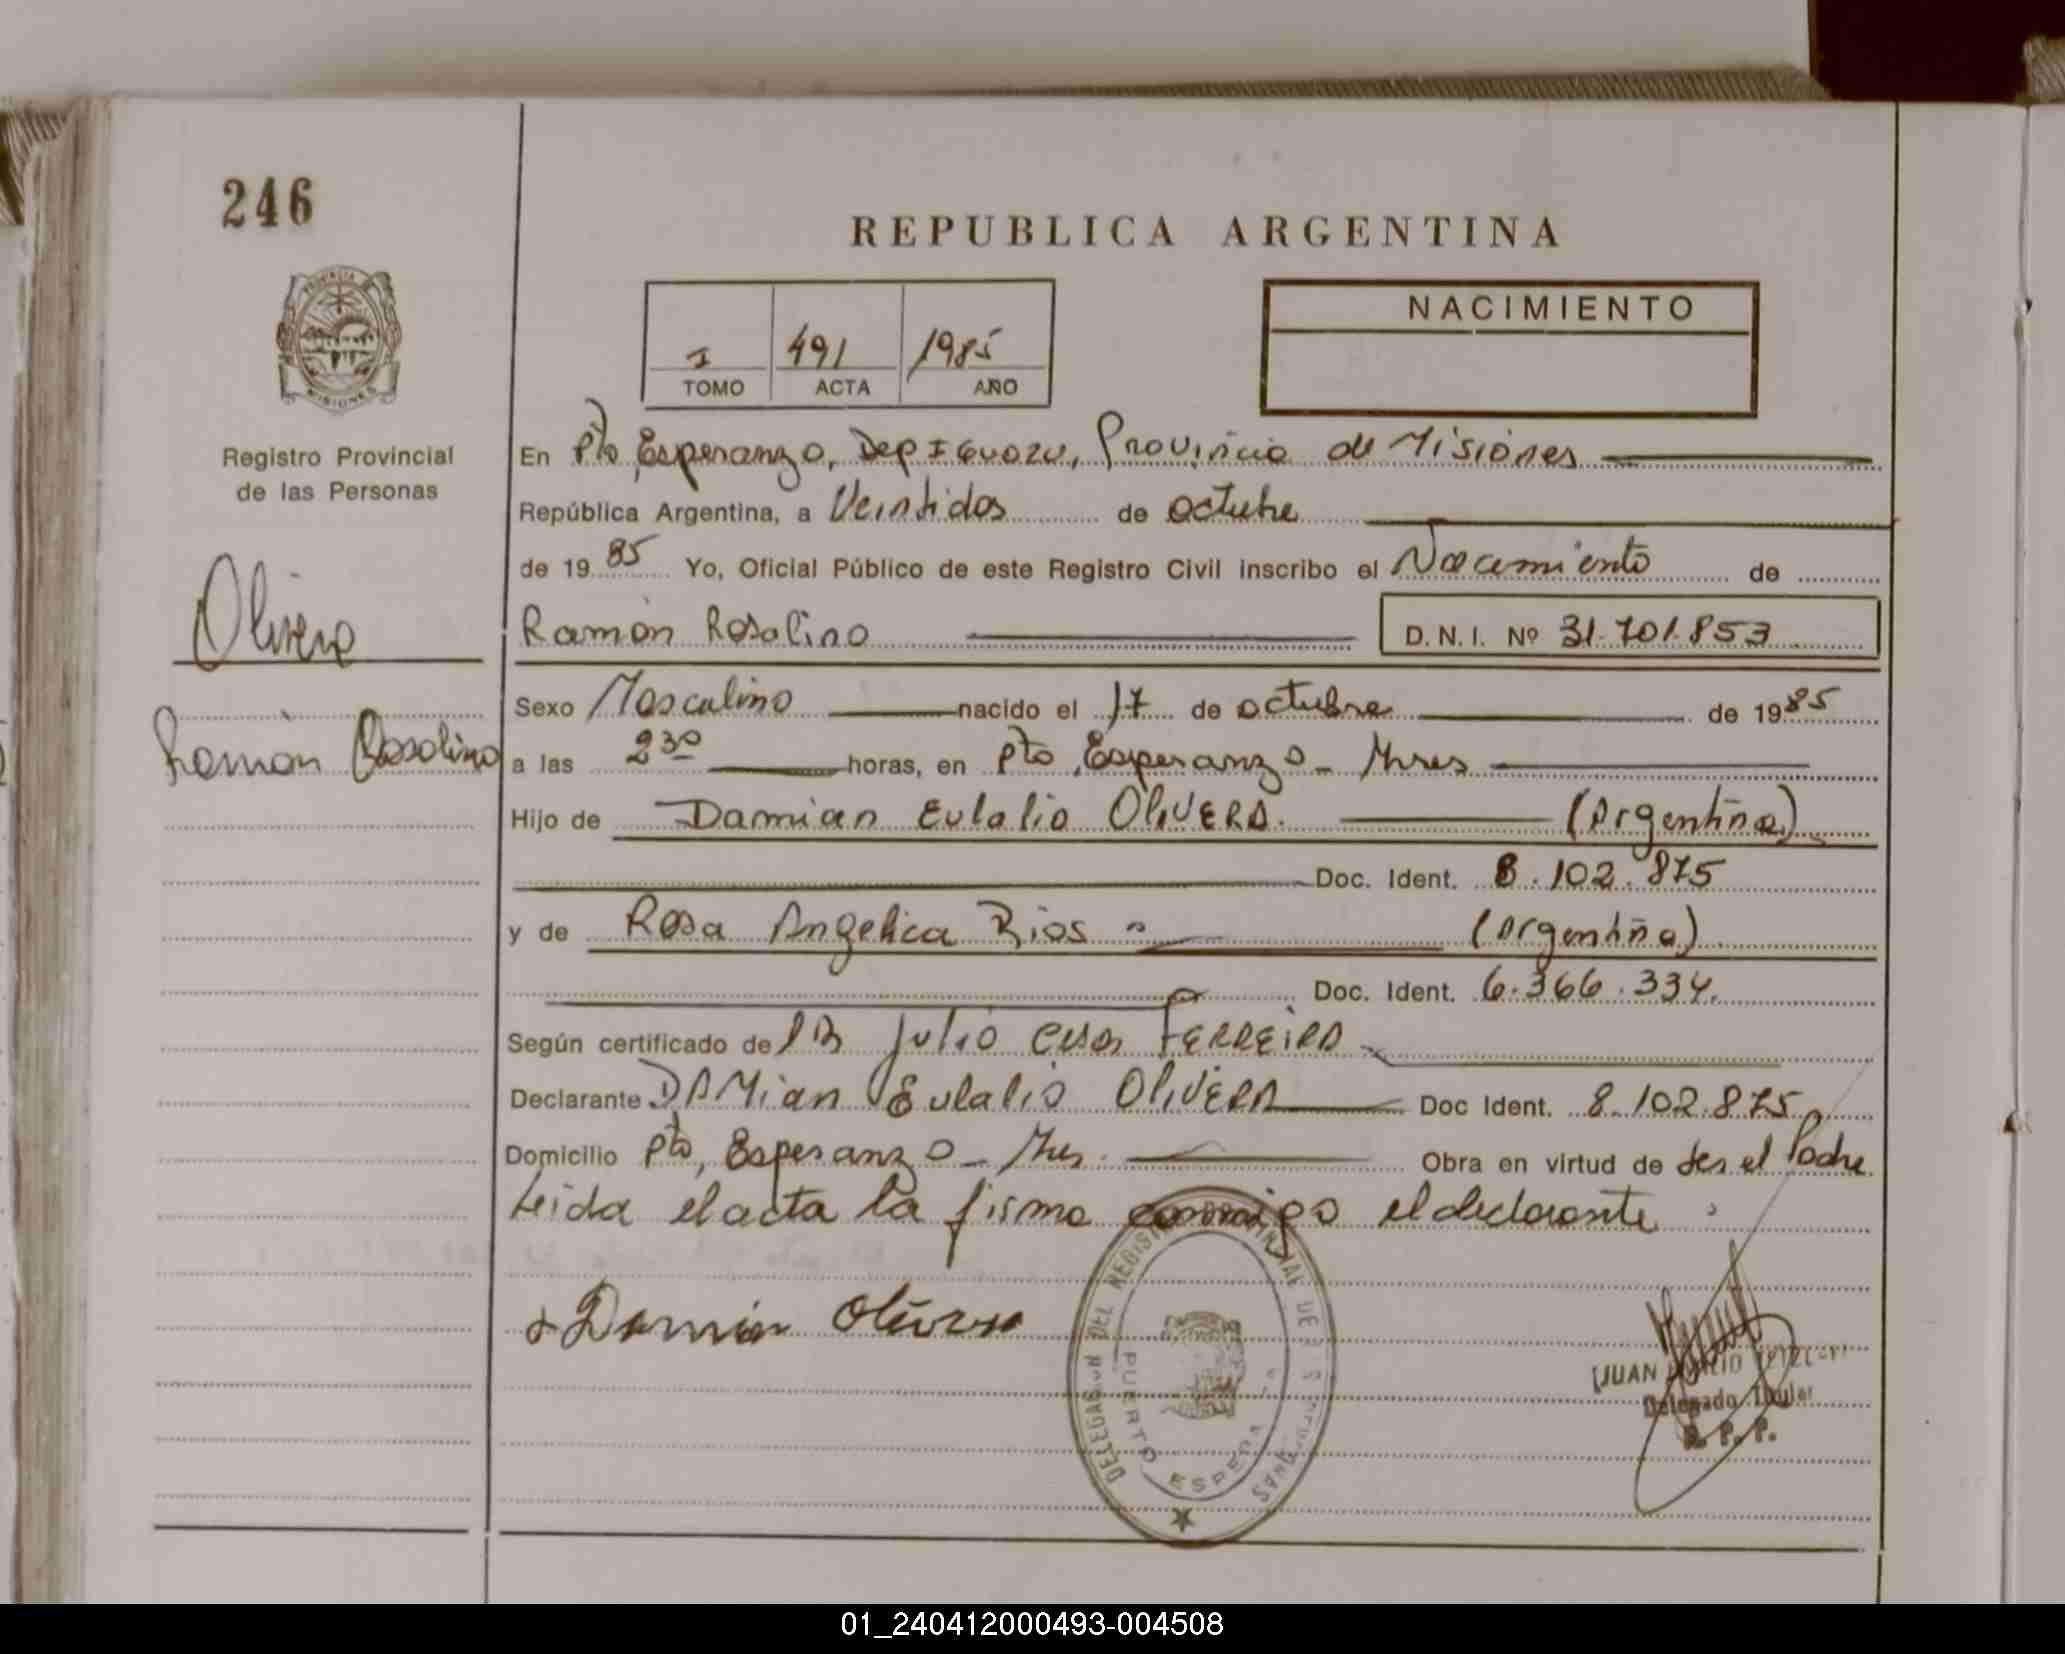 246
REPUBLICA ARGENTINA
PROVINCIA DE MISIONES
Registro Provincial
de las Personas
I 491 1985
TOMO ACTA AÑO
NACIMIENTO
En Pto Esperanza, Dep Iguazu, Provincia de Misiones
República Argentina, a Veintidos de octubre
de 19 85 Yo, Oficial Público de este Registro Civil inscribo el Nacimiento de
Olivera
Ramón Rosalino D.N.I. Nº 31.701.853
Sexo Masculino nacido el 17 de octubre de 1985
Ramón Rosolino
a las 2 30 horas, en Pto Esperanza - Mnes
Hijo de Damian Eulalio OliVERA. (Argentina)
Doc. Ident. 8.102.875
y de Rosa Angelica Rios (Argentina)
Doc. Ident. 6.366.334.
Según certificado de Julio Cesar FERREIRA
Declarante DAMian Eulalio OliVERA Doc Ident. 8.102.875
Domicilio Pto, Esperanza - Mnes. Obra en virtud de ser el Padre
Leida el acta la firma conmigo el declarante
Damian Olivera
DELEGACION DEL REGISTRO PROVINCIAL DE LAS PERSONAS
PUERTO ESPERANZA
JUAN
Delegado Titular
R. P. P.
01_240412000493-004508